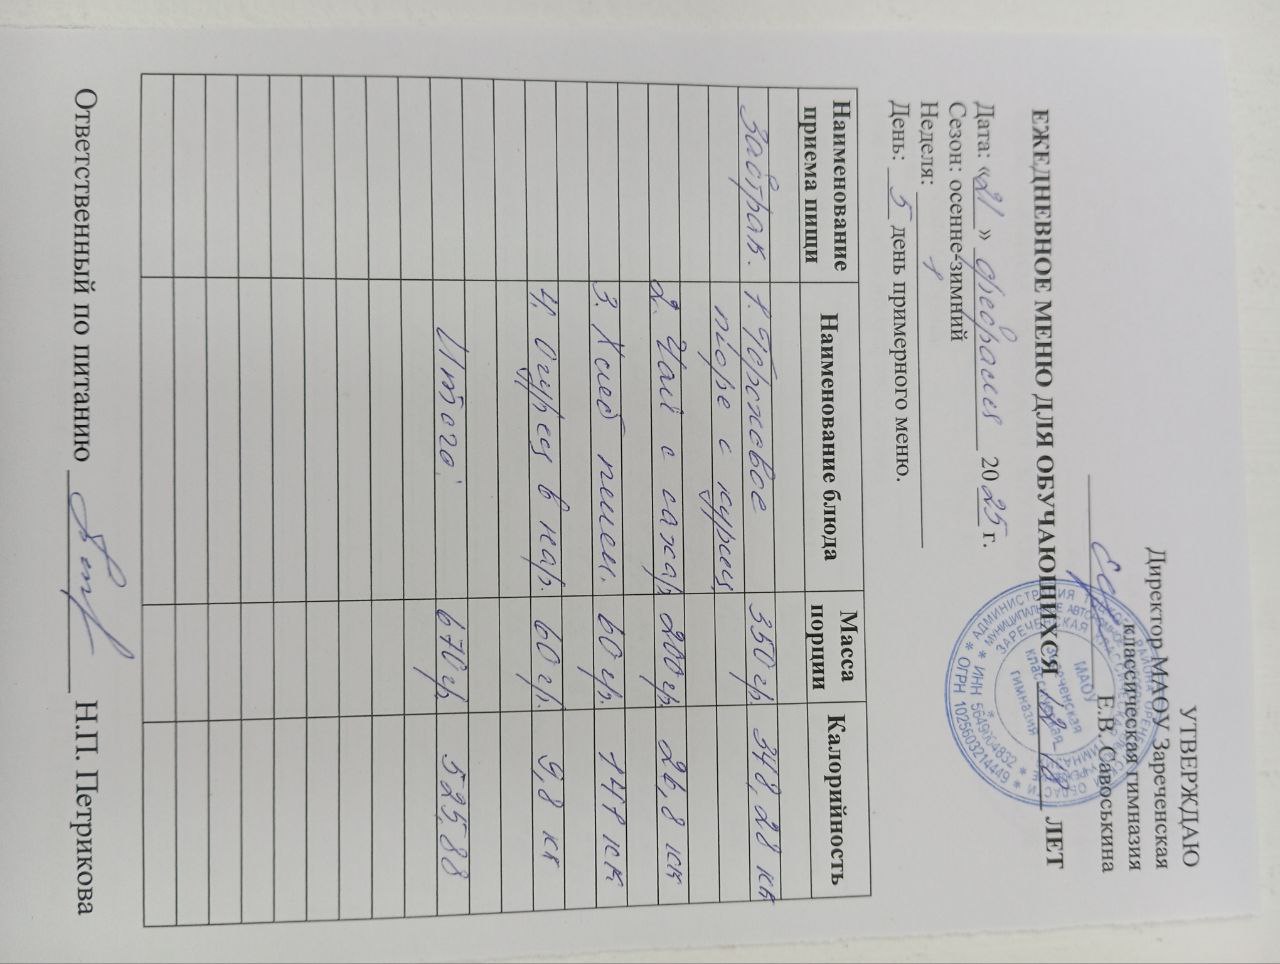 УТВЕРЖДАЮ
Директор МАОУ Зареченская
классическая гимназия
Е.В. Савоськина
ЕЖЕДНЕВНОЕ МЕНЮ ДЛЯ ОБУЧАЮЩИХСЯ ЛЕТ
Дата: «21» февраля 2025 г.
Сезон: осенне-зимний
Неделя: 1
День: 5 день примерного меню.
Наименование приема пищи Наименование блюда Масса порции Калорийность
Завтрак. 1. Гороховое 350 гр. 348,28 кк
пюре с куриц
2. Чай с сахар 200 гр. 26,8 кк
3. Хлеб пшен. 60 гр. 141 кк
4. Огурец в нар. 60 гр. 9,8 кк
Итого: 670 гр. 525,88
Ответственный по питанию Н.П. Петрикова
МАОУ
Зареченская
классическая
гимназия
* ИНН 5649004832 *
* ОГРН 1025603214449 *